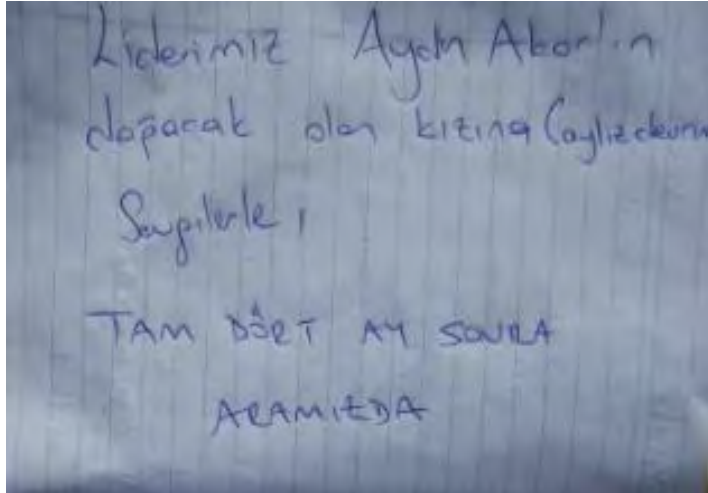 Liderimiz Aydın Akar'ın
doğacak olan kızına
Sevgilerle,
TAM DÖRT AY SONRA
ARAMIZDA